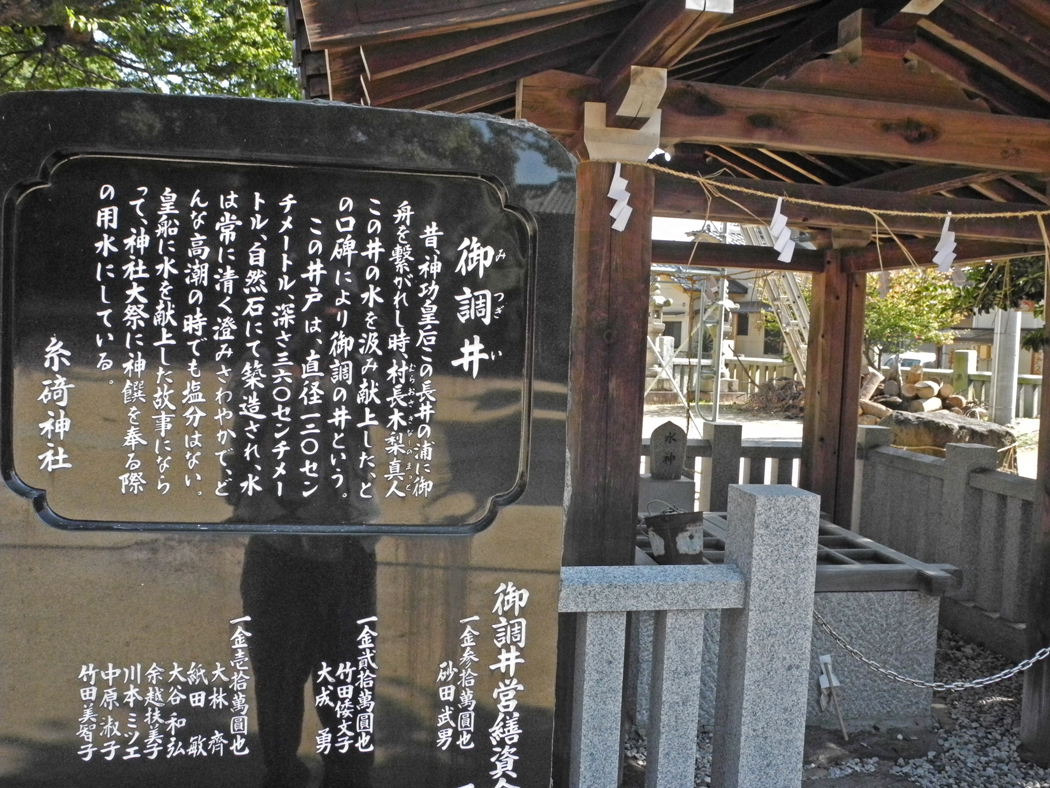 御調井
みつぎい
昔、神功皇后この長井の浦に御
舟を繋がれし時、村長木梨真人
むらおさきなしのまっと
この井の水を汲み献上した、と
の口碑により御調の井という。
この井戸は、直径一二〇セン
チメートル、深さ三六〇センチメー
トル、自然石にて築造され、水
は常に清く澄みさわやかで、ど
んな高潮の時でも塩分はない。
皇船に水を献上した故事になら
って、神社大祭に神饌を奉る際
の用水にしている。
糸碕神社
御調井営繕資金
一金参拾萬圓也
砂田武男
一金貳拾萬圓也
竹田倭文子
大成勇
一金壱拾萬圓也
大林齊
紙田敏
大谷和弘
余越扶美子
川本ミツエ
中原淑子
竹田美智子
水神